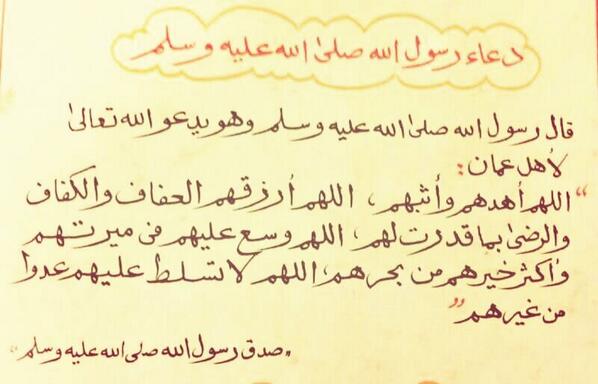 دعاء رسول الله صلى الله عليه وسلم
قال رسول الله صلى الله عليه وسلم وهو يدعو الله تعالى
لأهل عمان:
"اللهم أهدهم وأثبهم، اللهم أرزقهم العفاف والكفاف
والرضى بما قدرت لهم، اللهم وسع عليهم في ميرتهم
وأكثر خيرهم من بحرهم، اللهم لا تسلط عليهم عدوا
من غيرهم"
"صدق رسول الله صلى الله عليه وسلم"